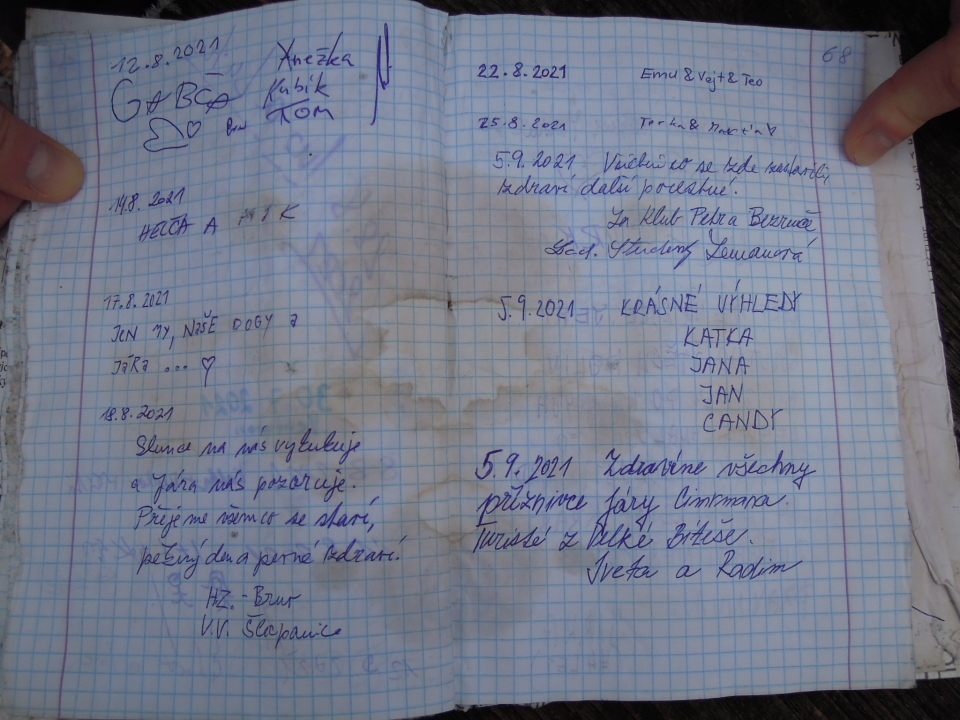 12.8.2021
GABČA
Anežka
Kubík
TOM
14.8.2021
HELČA A
17.8.2021
JEN MY, NAŠE DOGY a
JÁRA ... ♡
18.8.2021
Slunce na nás vykukuje
a Jára nás pozoruje.
Přejeme všem co se staví,
pěkný den a pevné zdraví.
HZ. - Brno
V.V. Šlapanice
68
22.8.2021 Emu & Vojt & Teo
25.8.2021 Terka & Martin
5.9.2021 Všichni co se zde zastavili,
zdraví další pocestné.
Za Klub Petra Bezruče
Zemanová
5.9.2021 KRÁSNÉ VÝHLEDY
KATKA
JANA
JAN
CANDY
5.9.2021 Zdravíme všechny
příznivce Járy Cimrmana.
Turisté z Velké Bíteše.
Iveta a Radim